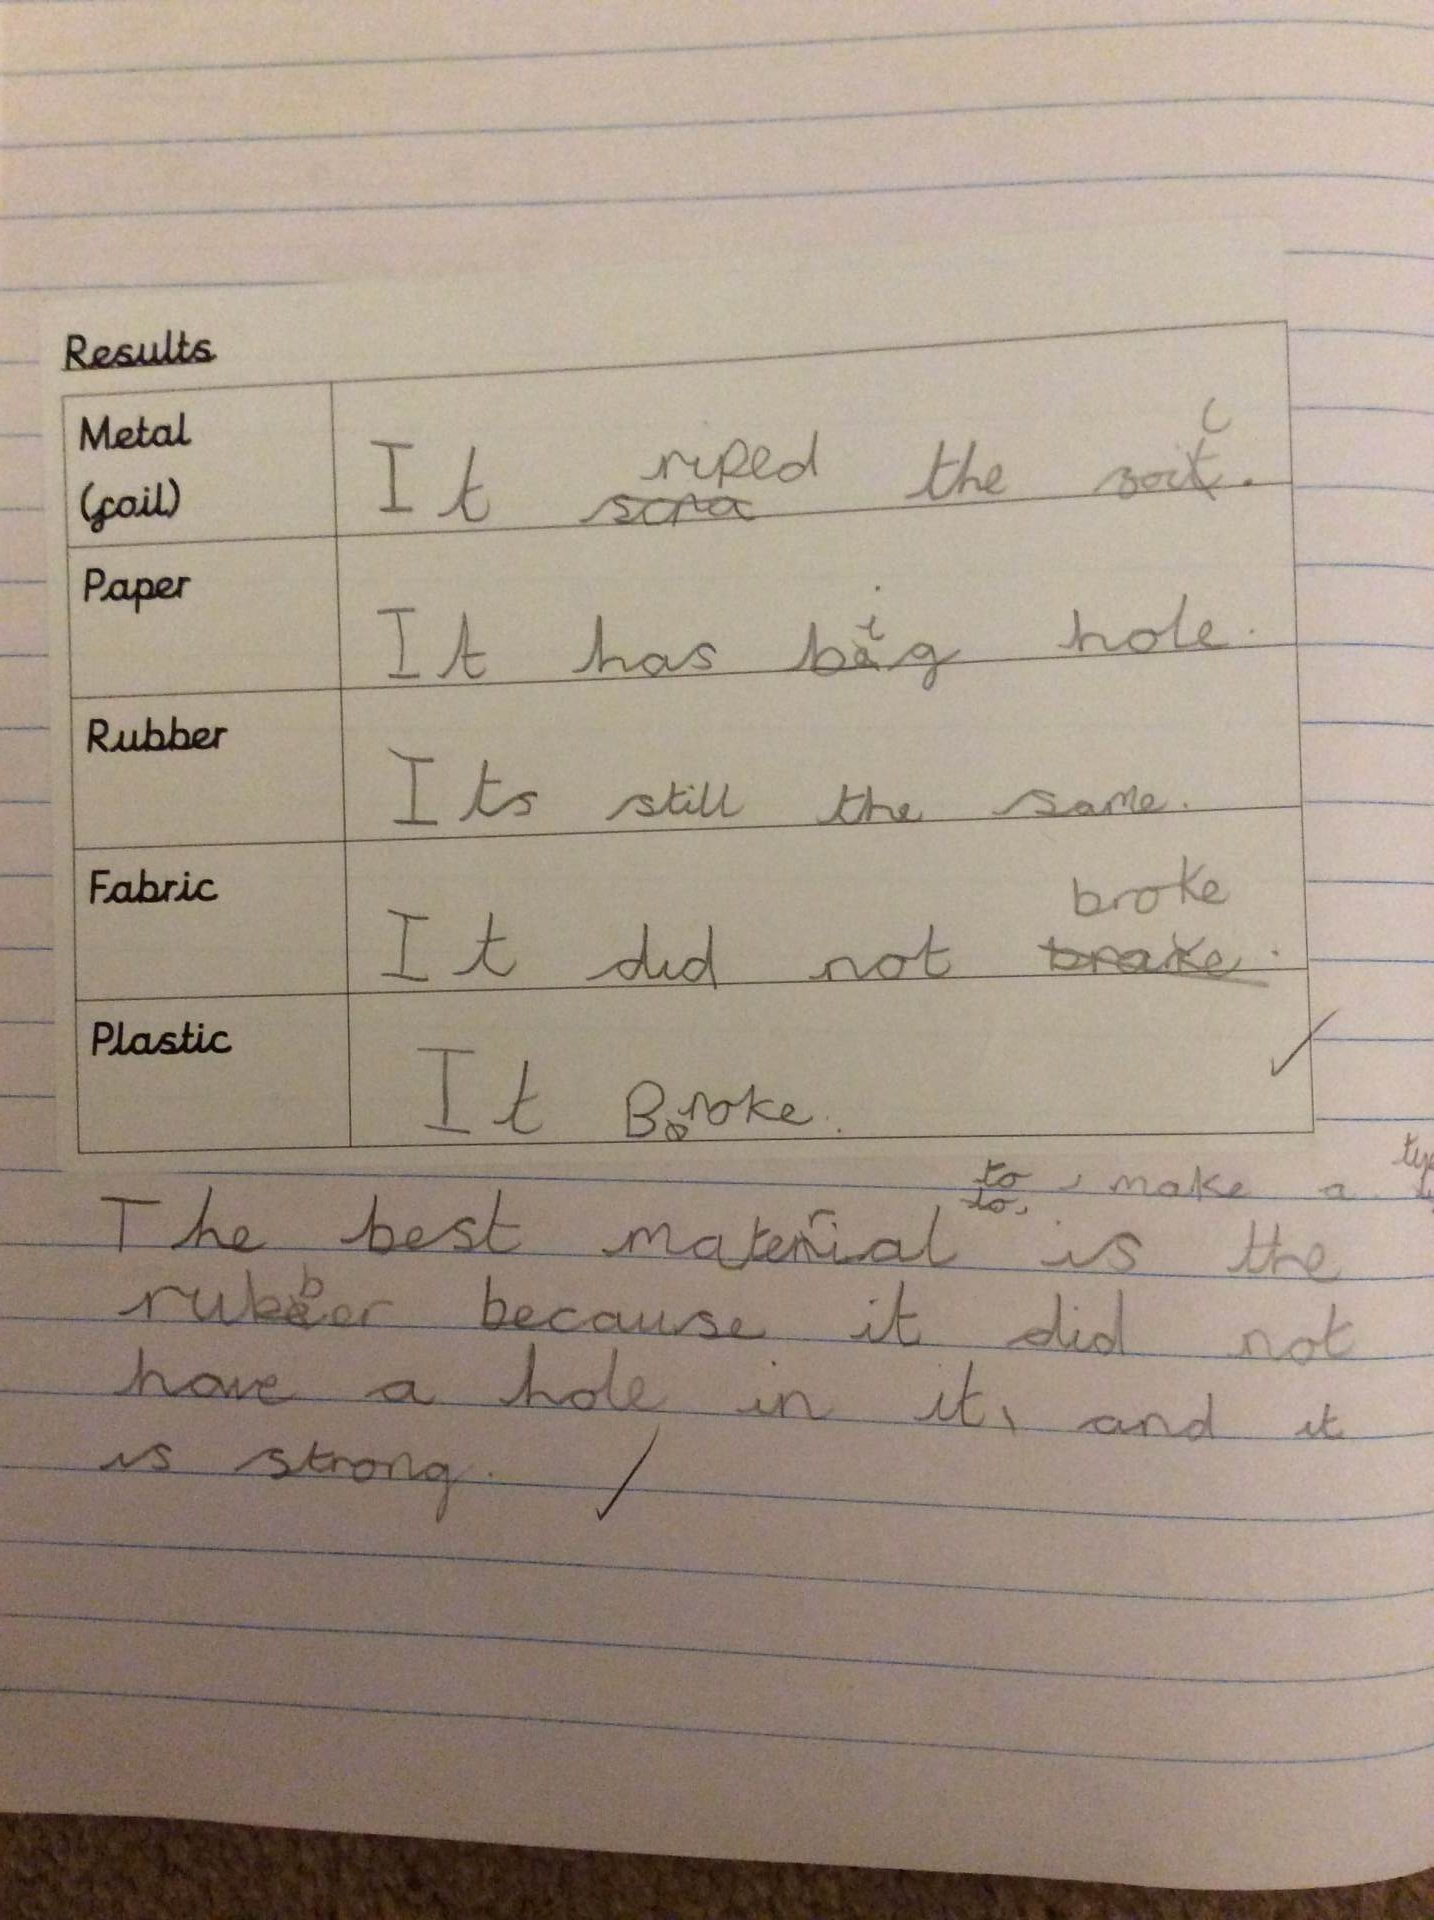 Results
Metal
(foil)
It riped the
Paper
It has big hole.
Rubber
Its still the same.
Fabric
It did not broke.
Plastic
It Broke.
to make a
The best material is the
rubber because it did not
have a hole in it, and it
is strong.